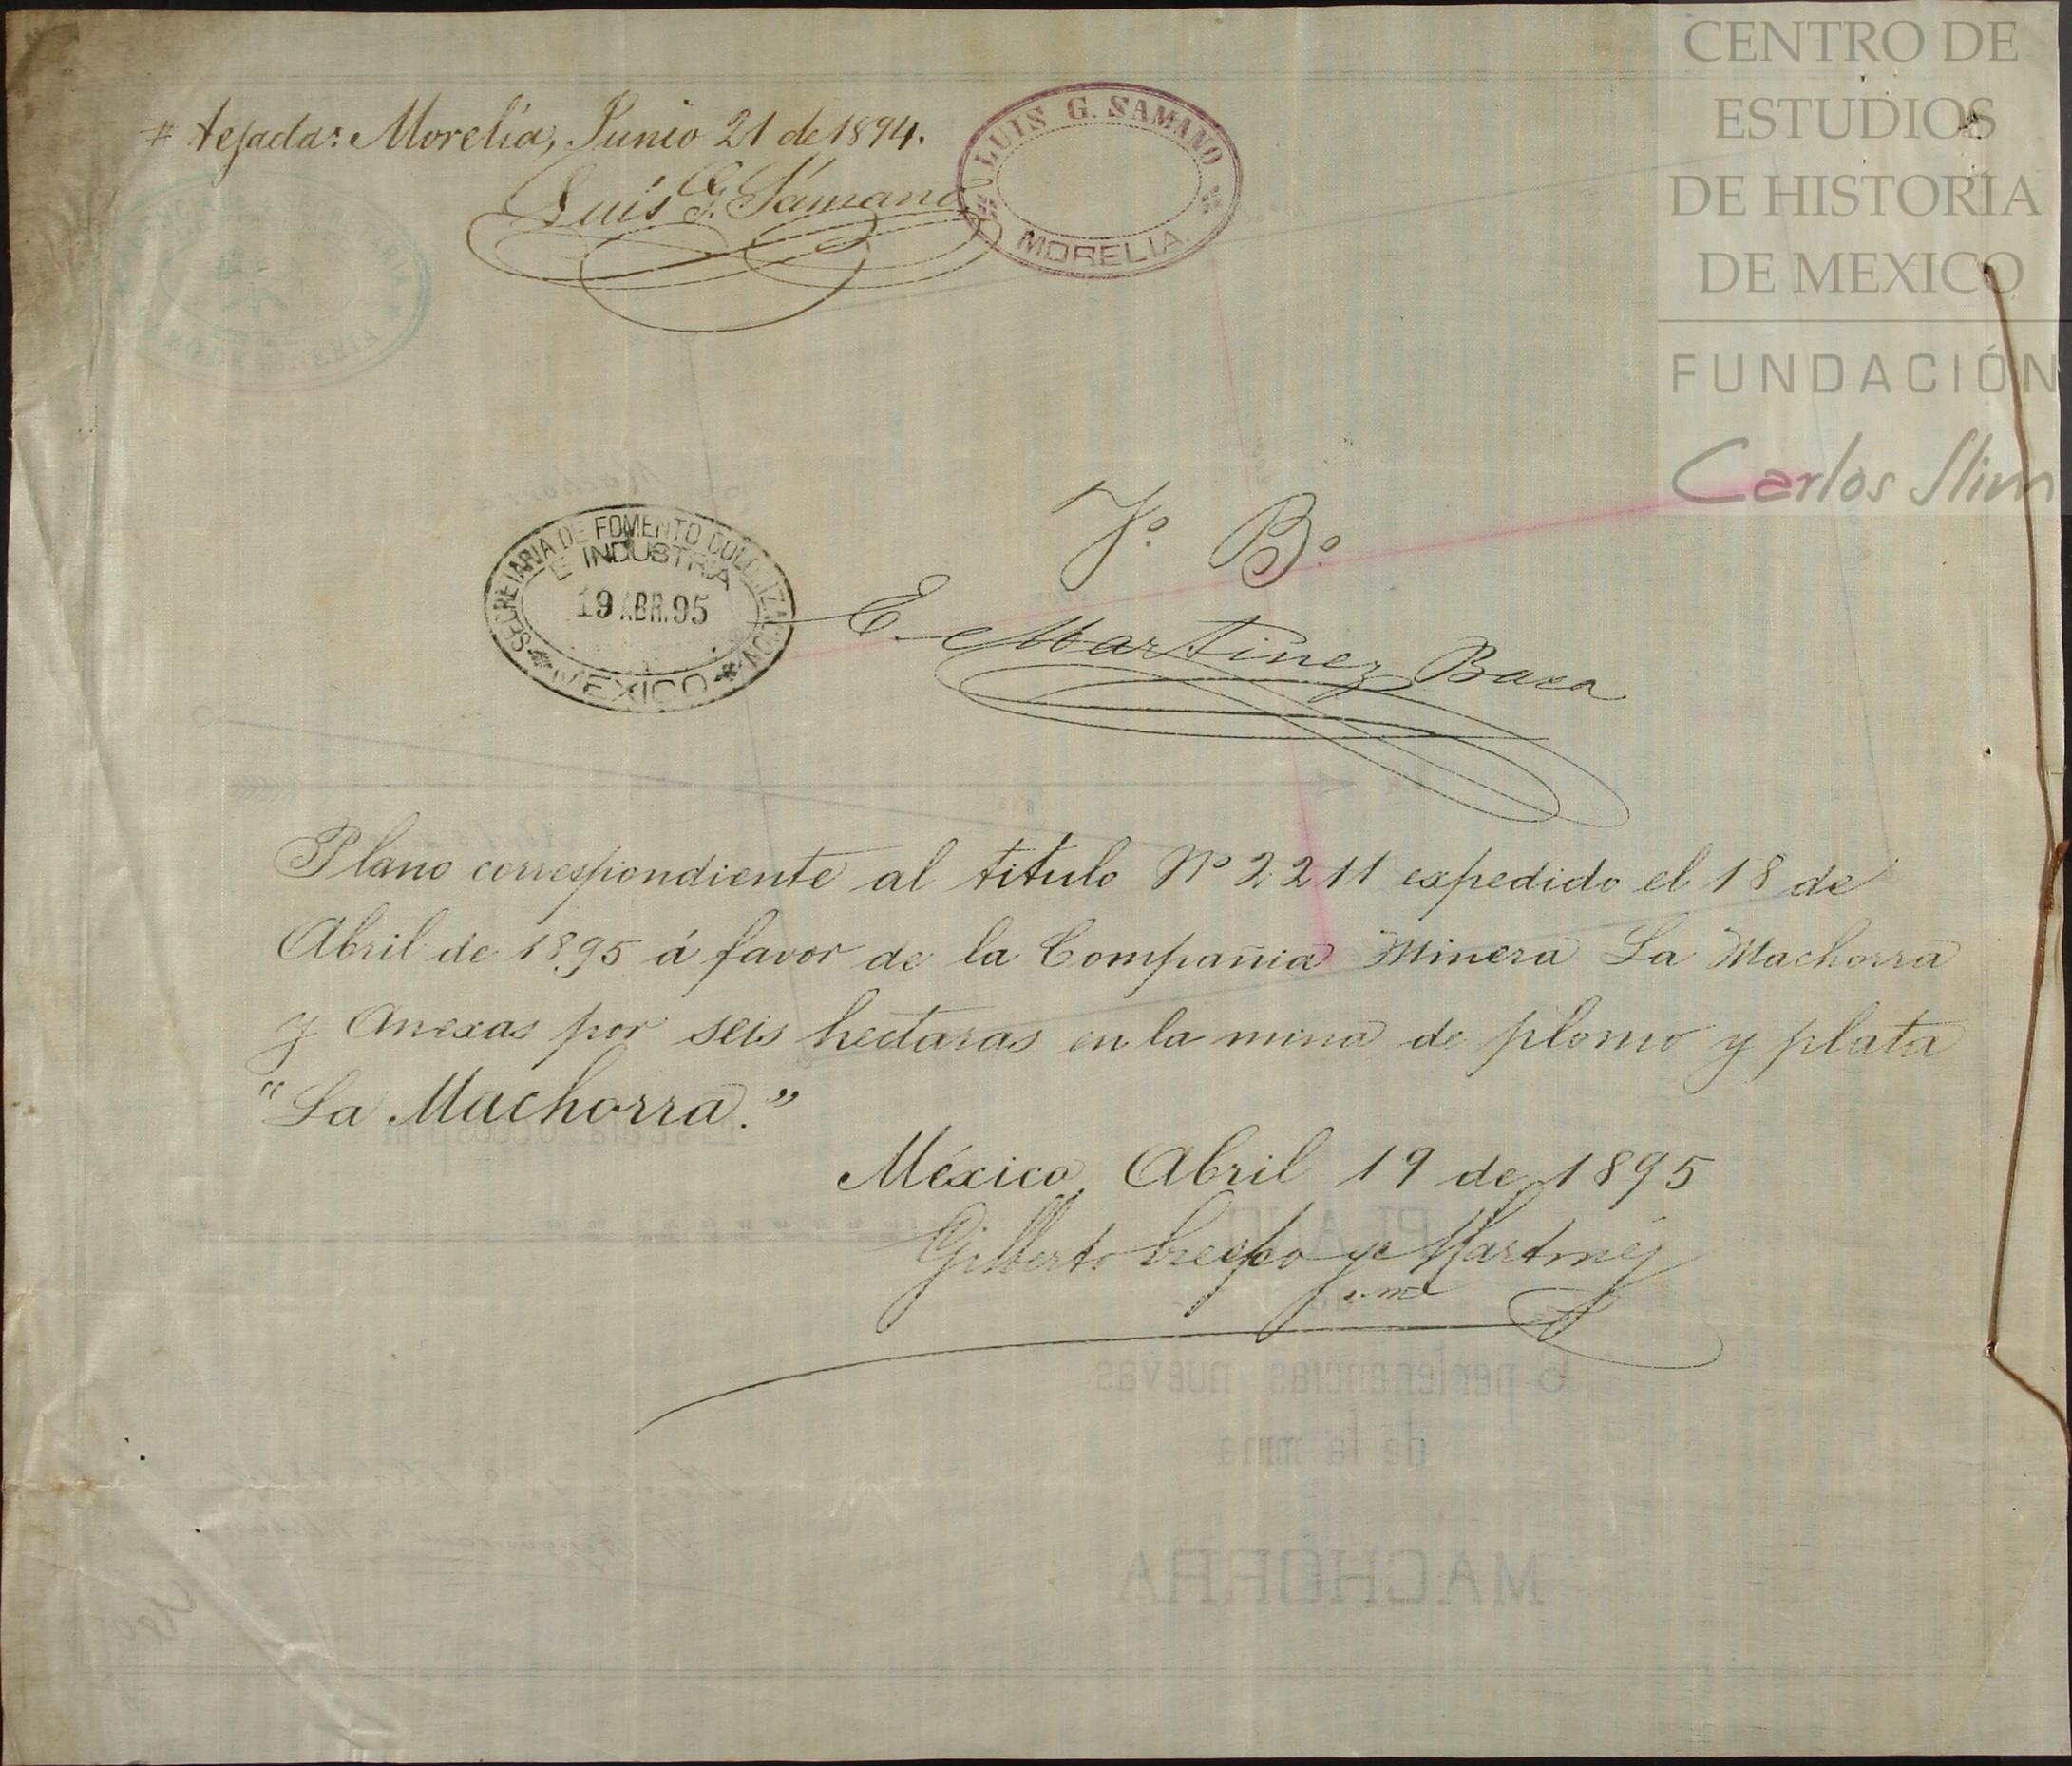 CENTRO DE
ESTUDIOS
DE HISTORIA
DE MEXICO
FUNDACIÓN
Carlos Slim
# tejada: Morelia, Junio 21 de 1894.
Luis G. Sámano
LUIS G. SAMANO
MORELIA.
Vo. Bo.
SECRETARIA DE FOMENTO COLONIZACION
E INDUSTRIA
19 ABR. 95
MEXICO
E. Martinez Baca
Plano correspondiente al titulo No 2211 expedido el 18 de
Abril de 1895 á favor de la Compañia Minera La Machorra
y Anexas por seis hectaras en la mina de plomo y plata
"La Machorra."
México, Abril 19 de 1895
Gilberto Crespo y Martinez
PLANO
de
6 pertenencias nuevas
de la mina
MACHORRA